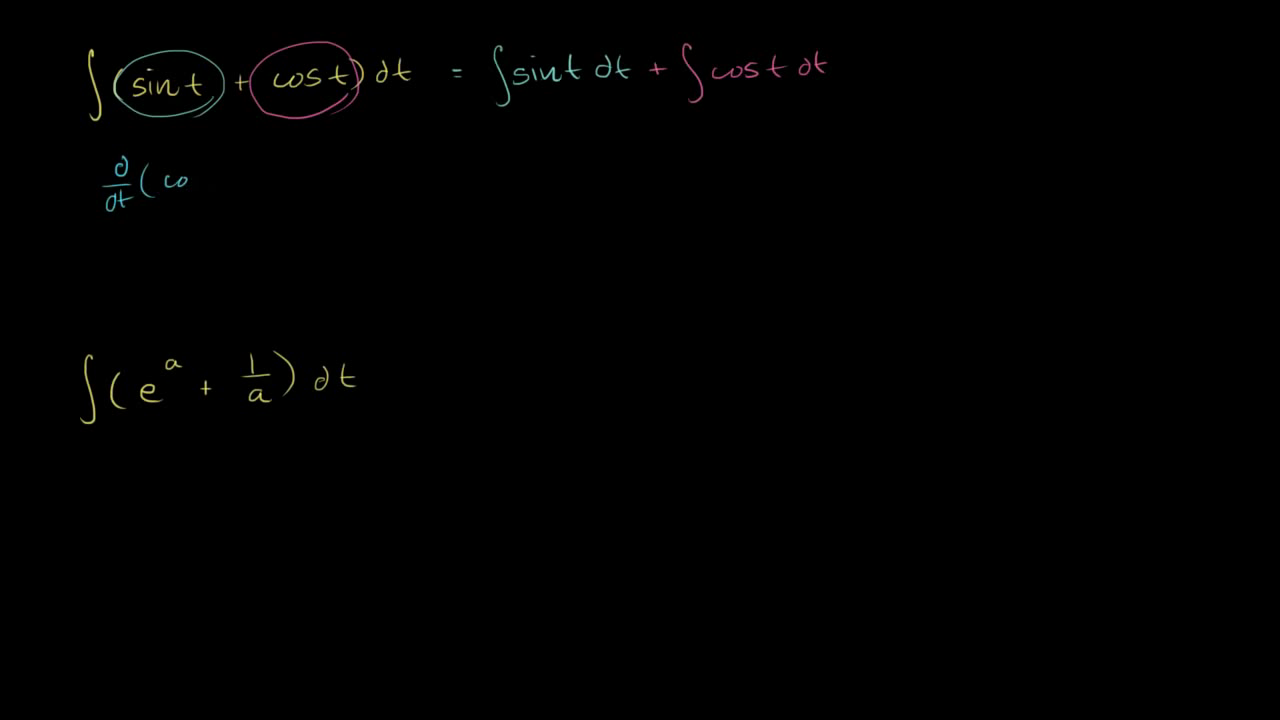 ∫(sin t + cos t) dt = ∫sin t dt + ∫cos t dt
d/dt (co
∫(e^a + 1/a) dt